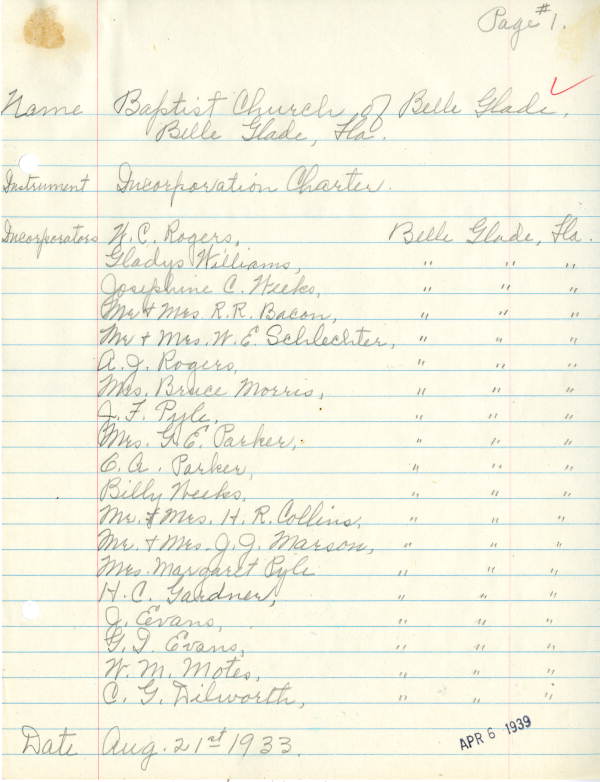 Page #1.
Name Baptist Church of Belle Glade,
Belle Glade, Fla.
Instrument Incorporation Charter.
Incorporators W. C. Rogers, Belle Glade, Fla.
Gladys Williams, " " "
Josephine C. Weeks, " " "
Mr + Mrs. R. R. Bacon, " " "
Mr + Mrs. W. E. Schlechter, " " "
A. J. Rogers, " " "
Mrs. Bruce Morris, " " "
J. F. Pyle, " " "
Mrs. G. E. Parker, " " "
C. A. Parker, " " "
Billy Weeks, " " "
Mr. & Mrs. H. R. Collins, " " "
Mr. + Mrs. J. J. Marson, " " "
Mrs. Margaret Pyle " " "
H. C. Gardner, " " "
J. Evans, " " "
G. I. Evans, " " "
W. M. Motes, " " "
C. G. Dilworth, " " "
Date Aug. 21st 1933.
APR 6 1939